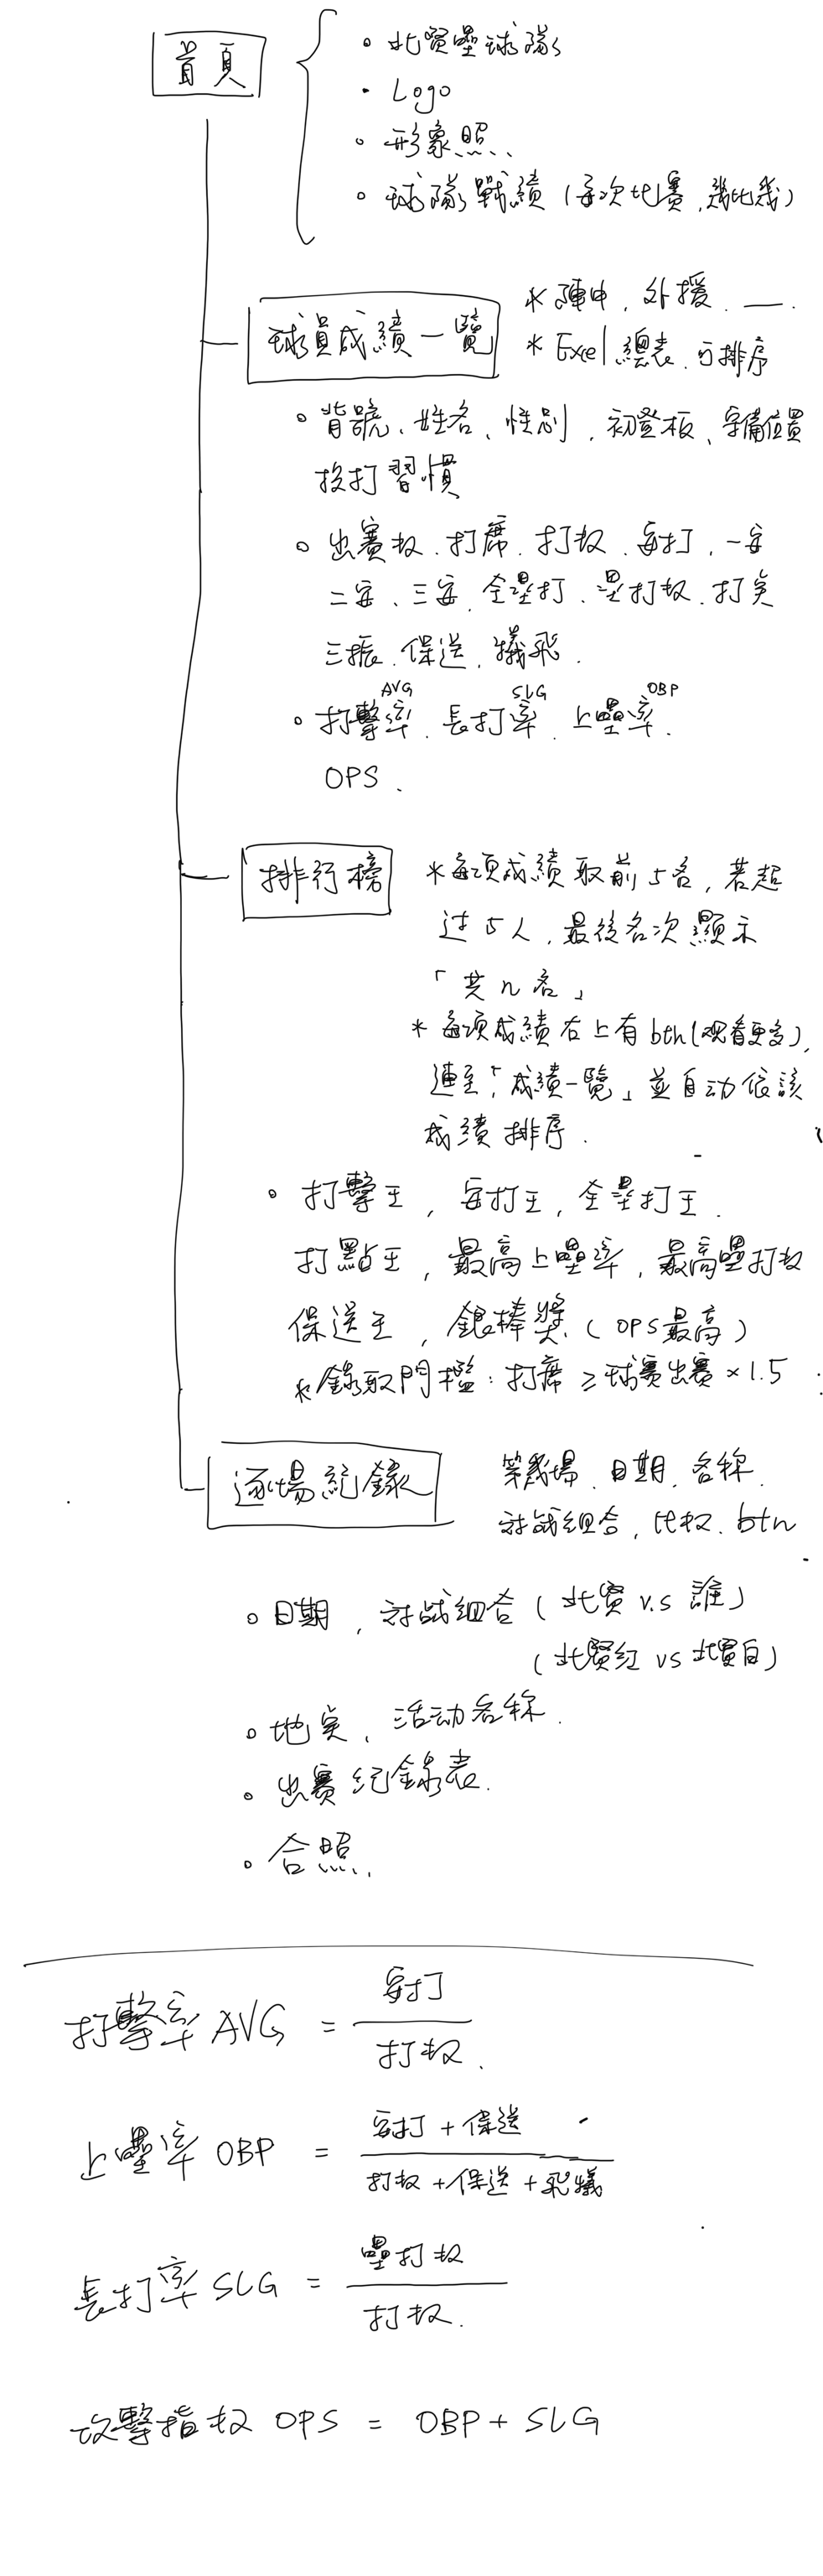 首頁
。北賢壘球隊
· Logo
。形象照、
。球隊戰績(每次比賽,幾比幾)
球員成績一覽
* 陣中、外援、__.
* Excel總表、可排序
。背號、姓名、性別、初登板、守備位置
投打習慣
。出賽数、打席、打数、安打、一安
二安、三安、全壘打、壘打数、打点
三振、保送、犧飛.
AVG SLG OBP
。打擊率、長打率、上壘率、
OPS、
排行榜
*每項成績取前5名,若超
过5人,最後名次顯示
「共n名」
*每項成績右上有btn(观看更多),
連至「成績一覽」並自动依該
成績排序.
。打擊王,安打王,全壘打王、
打點王,最高上壘率,最高壘打数
保送王,銀棒獎、(OPS最高)
*錄取門檻:打席≥球賽出賽×1.5
逐場紀錄
第幾場、日期、名称、
对战组合,比数、btn
。日期,对战组合(北賢v.s誰)
(北賢红 vs 北賢白)
。地点、活动名称.
。出賽紀錄表.
。合照、
打擊率 AVG = 安打 / 打数.
上壘率 OBP = 安打+保送 / 打数+保送+飛犧
長打率 SLG = 壘打数 / 打数.
攻擊指数 OPS = OBP + SLG